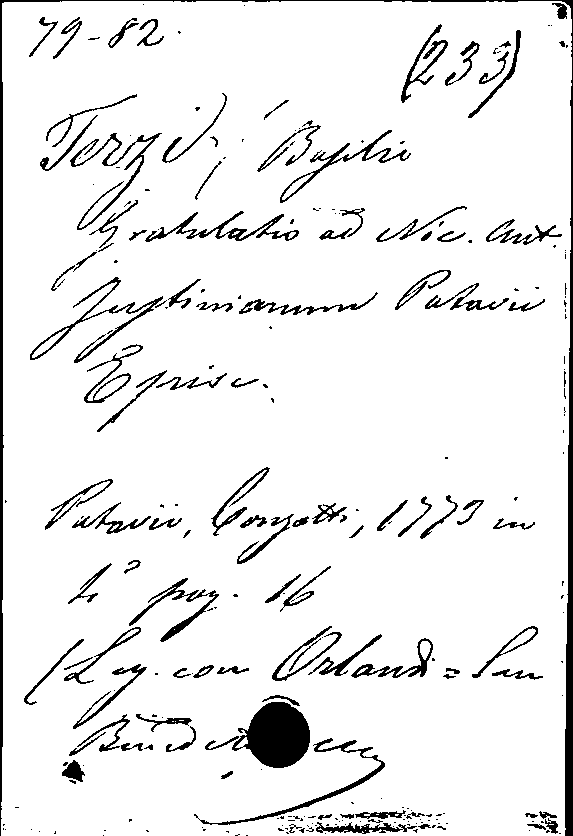 79-82.
(233)
Terzi, Basilio
Gratulatio ad Nic. Ant.
Justinianum Patavii
Episc.
Patavii, Conzatti, 1773 in
4° pag. 16
(Leg. con Orlandi = San